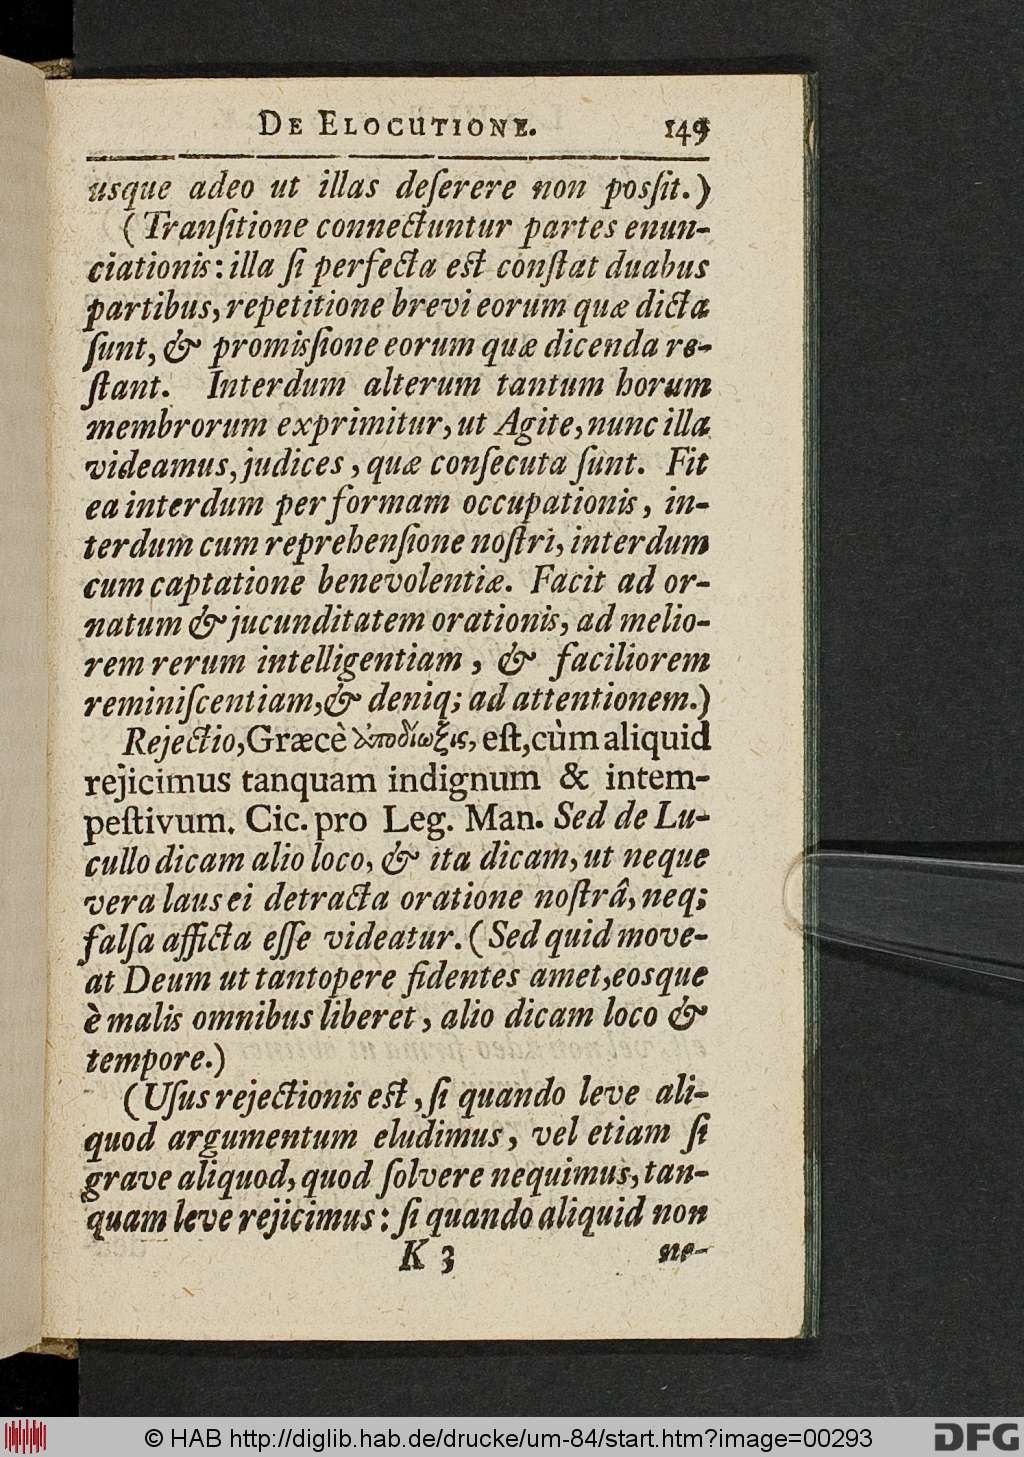 DE ELOCUTIONE. 149
usque adeo ut illas deſerere non posſit.)
(Tranſitione connectuntur partes enun-
ciationis: illa ſi perfecta est conſtat duabus
partibus, repetitione brevi eorum quæ dicta
ſunt, & promisſione eorum quæ dicenda re-
ſtant. Interdum alterum tantum horum
membrorum exprimitur, ut Agite, nunc illa
videamus, judices, quæ conſecuta ſunt. Fit
ea interdum per formam occupationis, in-
terdum cum reprehenſione noſtri, interdum
cum captatione benevolentiæ. Facit ad or-
natum & jucunditatem orationis, ad melio-
rem rerum intelligentiam, & faciliorem
reminiſcentiam, & deniq; ad attentionem.)
Rejectio, Græcè ἀποδίωξις, eſt, cùm aliquid
rejicimus tanquam indignum & intem-
peſtivum. Cic. pro Leg. Man. Sed de Lu-
cullo dicam alio loco, & ita dicam, ut neque
vera laus ei detracta oratione noſtrâ, neq;
falſa afficta eſſe videatur. (Sed quid move-
at Deum ut tantopere fidentes amet, eosque
è malis omnibus liberet, alio dicam loco &
tempore.)
(Uſus rejectionis est, ſi quando leve ali-
quod argumentum eludimus, vel etiam ſi
grave aliquod, quod ſolvere nequimus, tan-
quam leve rejicimus: ſi quando aliquid non
K 3 ne-
© HAB http://diglib.hab.de/drucke/um-84/start.htm?image=00293 DFG